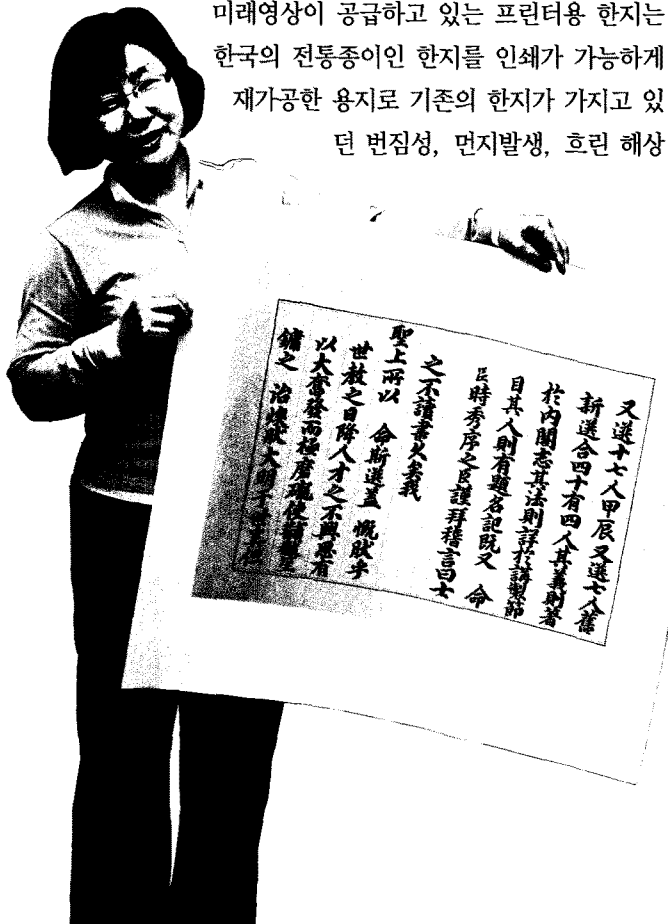 미래영상이 공급하고 있는 프린터용 한지는
한국의 전통종이인 한지를 인쇄가 가능하게
재가공한 용지로 기존의 한지가 가지고 있
던 번짐성, 먼지발생, 흐린 해상
又選十七人甲辰又選七人舊
新選合四十有四人其義則著
於內閣志其法則詳於講製節
目其人則有題名記既又 命
臣時秀序之臣謹拜稽言曰士
之不讀書久矣我
聖上所以 命斯選蓋 慨肰乎
世教之日降人才之不興思有
以大奮發而極磨
鏞之 治煥